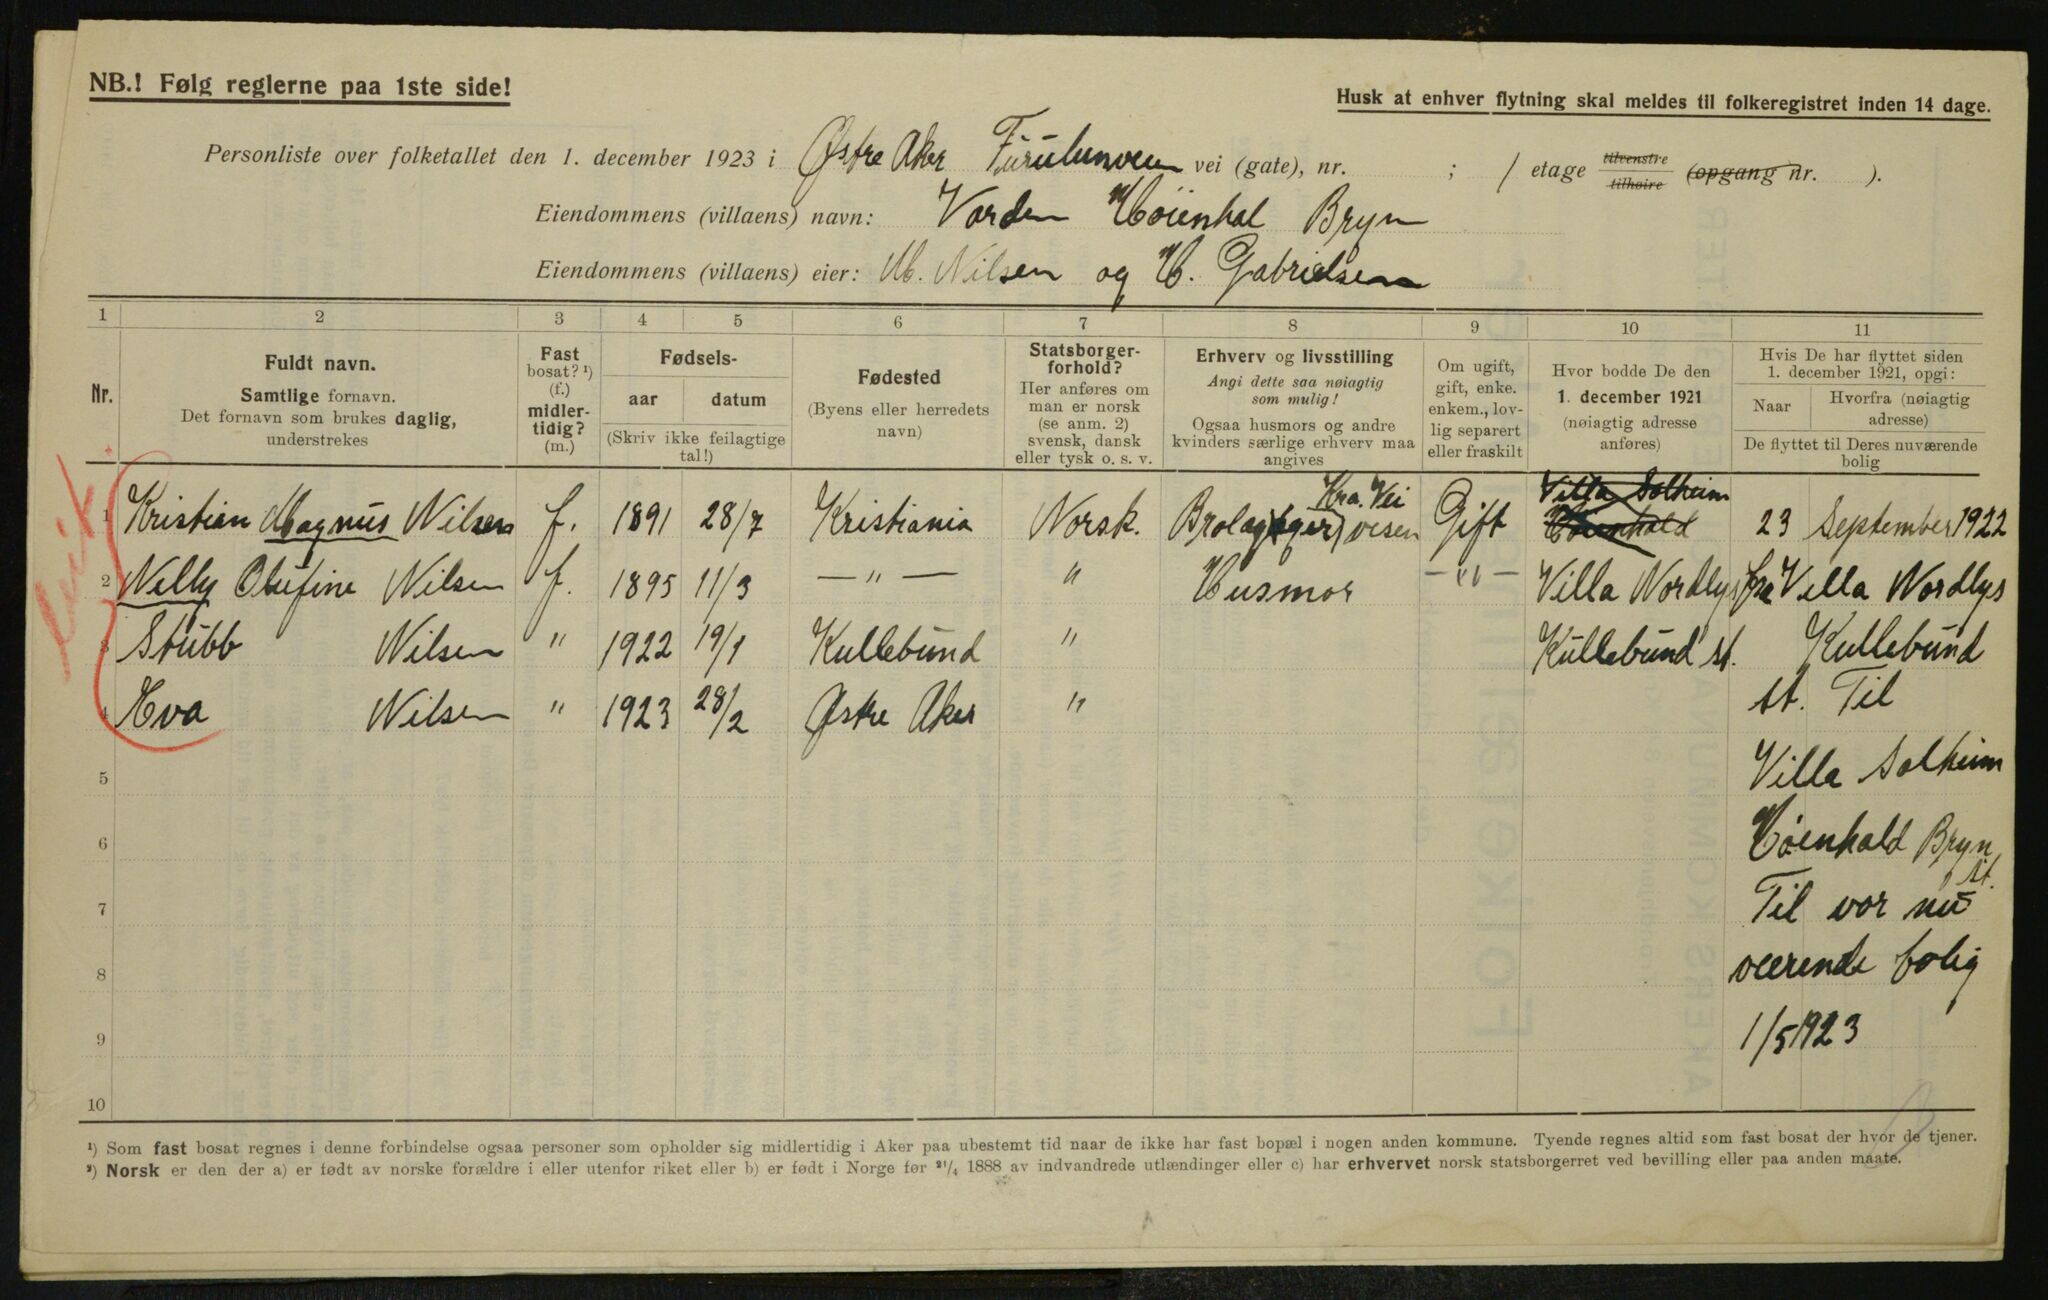 NB.! Følg reglerne paa 1ste side!
Husk at enhver flytning skal meldes til folkeregistret inden 14 dage.
Personliste over folketallet den 1. december 1923 i Østre Aker Furulunveien vei (gate), nr. ; 1 etage tilvenstre tilhøire (opgang nr. ).
Eiendommens (villaens) navn: Varden Höienhal Bryn
Eiendommens (villaens) eier: M. Nilsen og H. Gabrielsen
1 2 3 4 5 6 7 8 9 10 11
Nr.
Fuldt navn.
Samtlige fornavn.
Det fornavn som brukes daglig,
understrekes
Fast
bosat? ¹)
(f.)
midler-
tidig?
(m.)
Fødsels-
aar datum
(Skriv ikke feilagtige
tal!)
Fødested
(Byens eller herredets
navn)
Statsborger-
forhold?
Her anføres om
man er norsk
(se anm. 2)
svensk, dansk
eller tysk o. s. v.
Erhverv og livsstilling
Angi dette saa nøiagtig
som mulig!
Ogsaa husmors og andre
kvinders særlige erhverv maa
angives
Om ugift,
gift, enke.
enkem., lov-
lig separert
eller fraskilt
Hvor bodde De den
1. december 1921
(nøiagtig adresse
anføres)
Hvis De har flyttet siden
1. december 1921, opgi:
Naar Hvorfra (nøiagtig
adresse)
De flyttet til Deres nuværende
bolig
1 Kristian Magnus Nilsen f. 1891 28/7 Kristiania Norsk. Brolægger Kra. Vei vesen Gift Villa Solheim Höienhald 23 September 1922
2 Nelly Olufine Nilsen f. 1895 11/3 — " — " Husmor — " — Villa Nordlys fra Villa Nordlys
3 Stubb Nilsen " 1922 19/1 Kullebund " Kullebund st. Kullebund
4 Eva Nilsen " 1923 28/2 Østre Aker " st. Til
5 Villa Solheim
6 Höienhald Bryn st.
7 Til vor nu
8 værende bolig
9 1/5 1923
10
¹) Som fast bosat regnes i denne forbindelse ogsaa personer som opholder sig midlertidig i Aker paa ubestemt tid naar de ikke har fast bopæl i nogen anden kommune. Tyende regnes altid som fast bosat der hvor de tjener.
²) Norsk er den der a) er født av norske forældre i eller utenfor riket eller b) er født i Norge før 21/4 1888 av indvandrede utlændinger eller c) har erhvervet norsk statsborgerret ved bevilling eller paa anden maate.